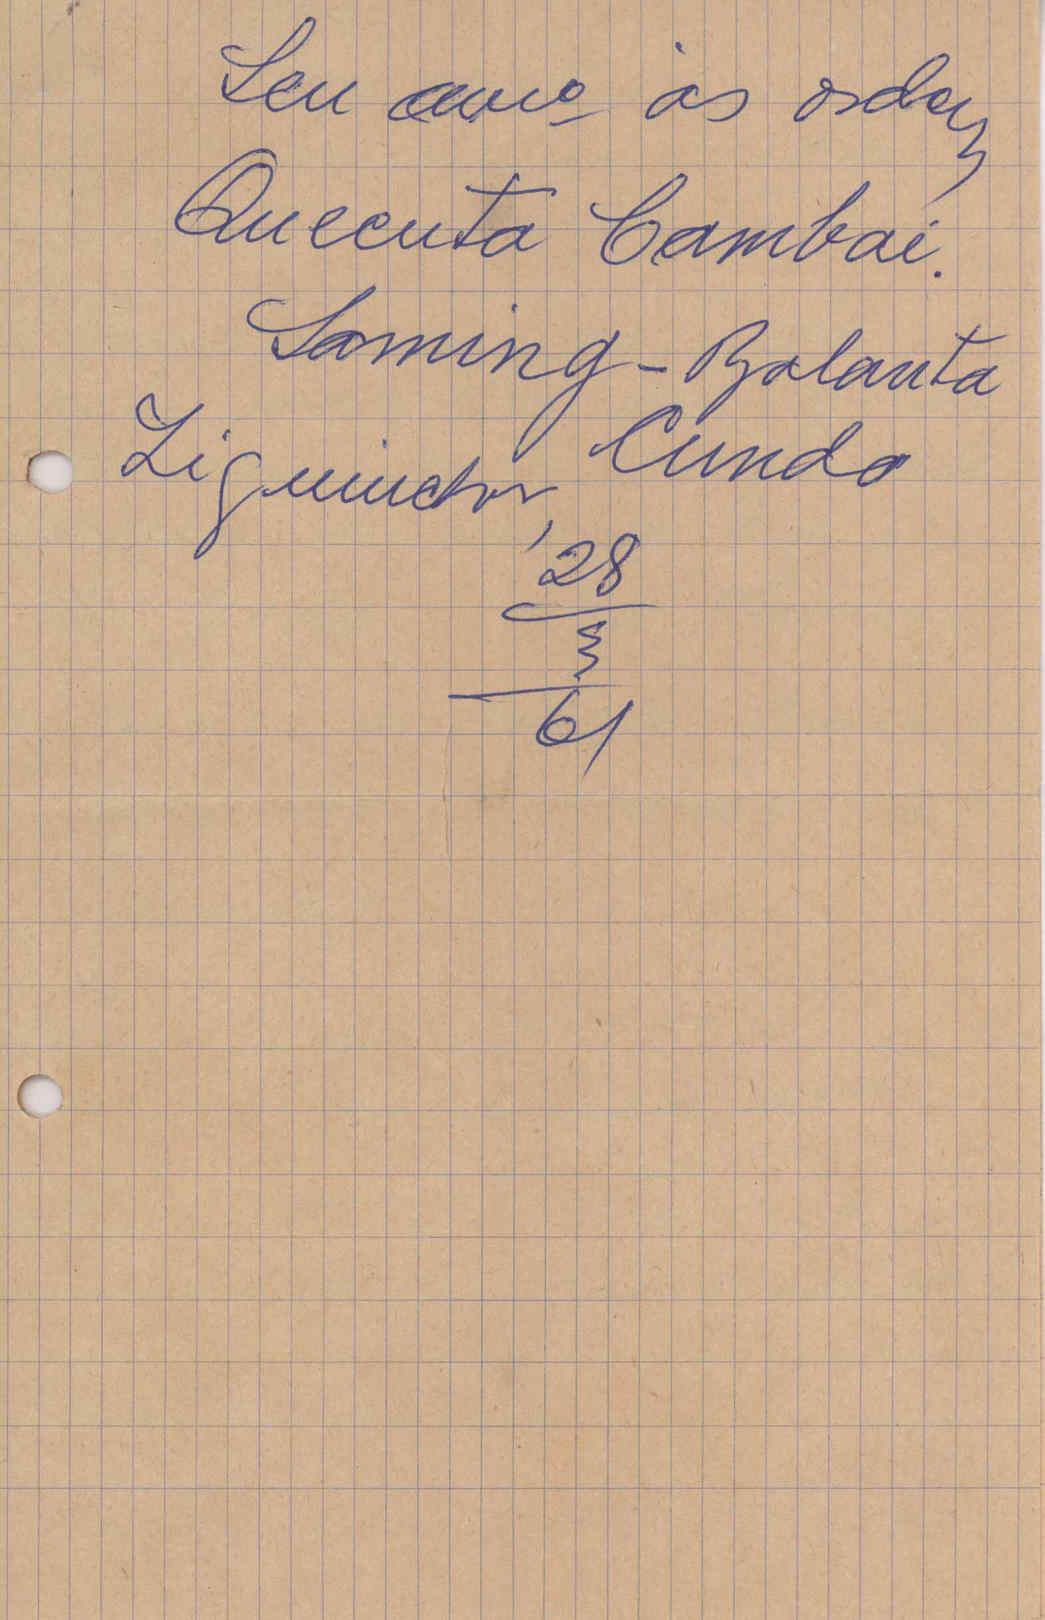 Seu amº às ordens
Quecuta Cambai.
Saming - Balanta
Cunda
Ziguinchor,
28
3
61